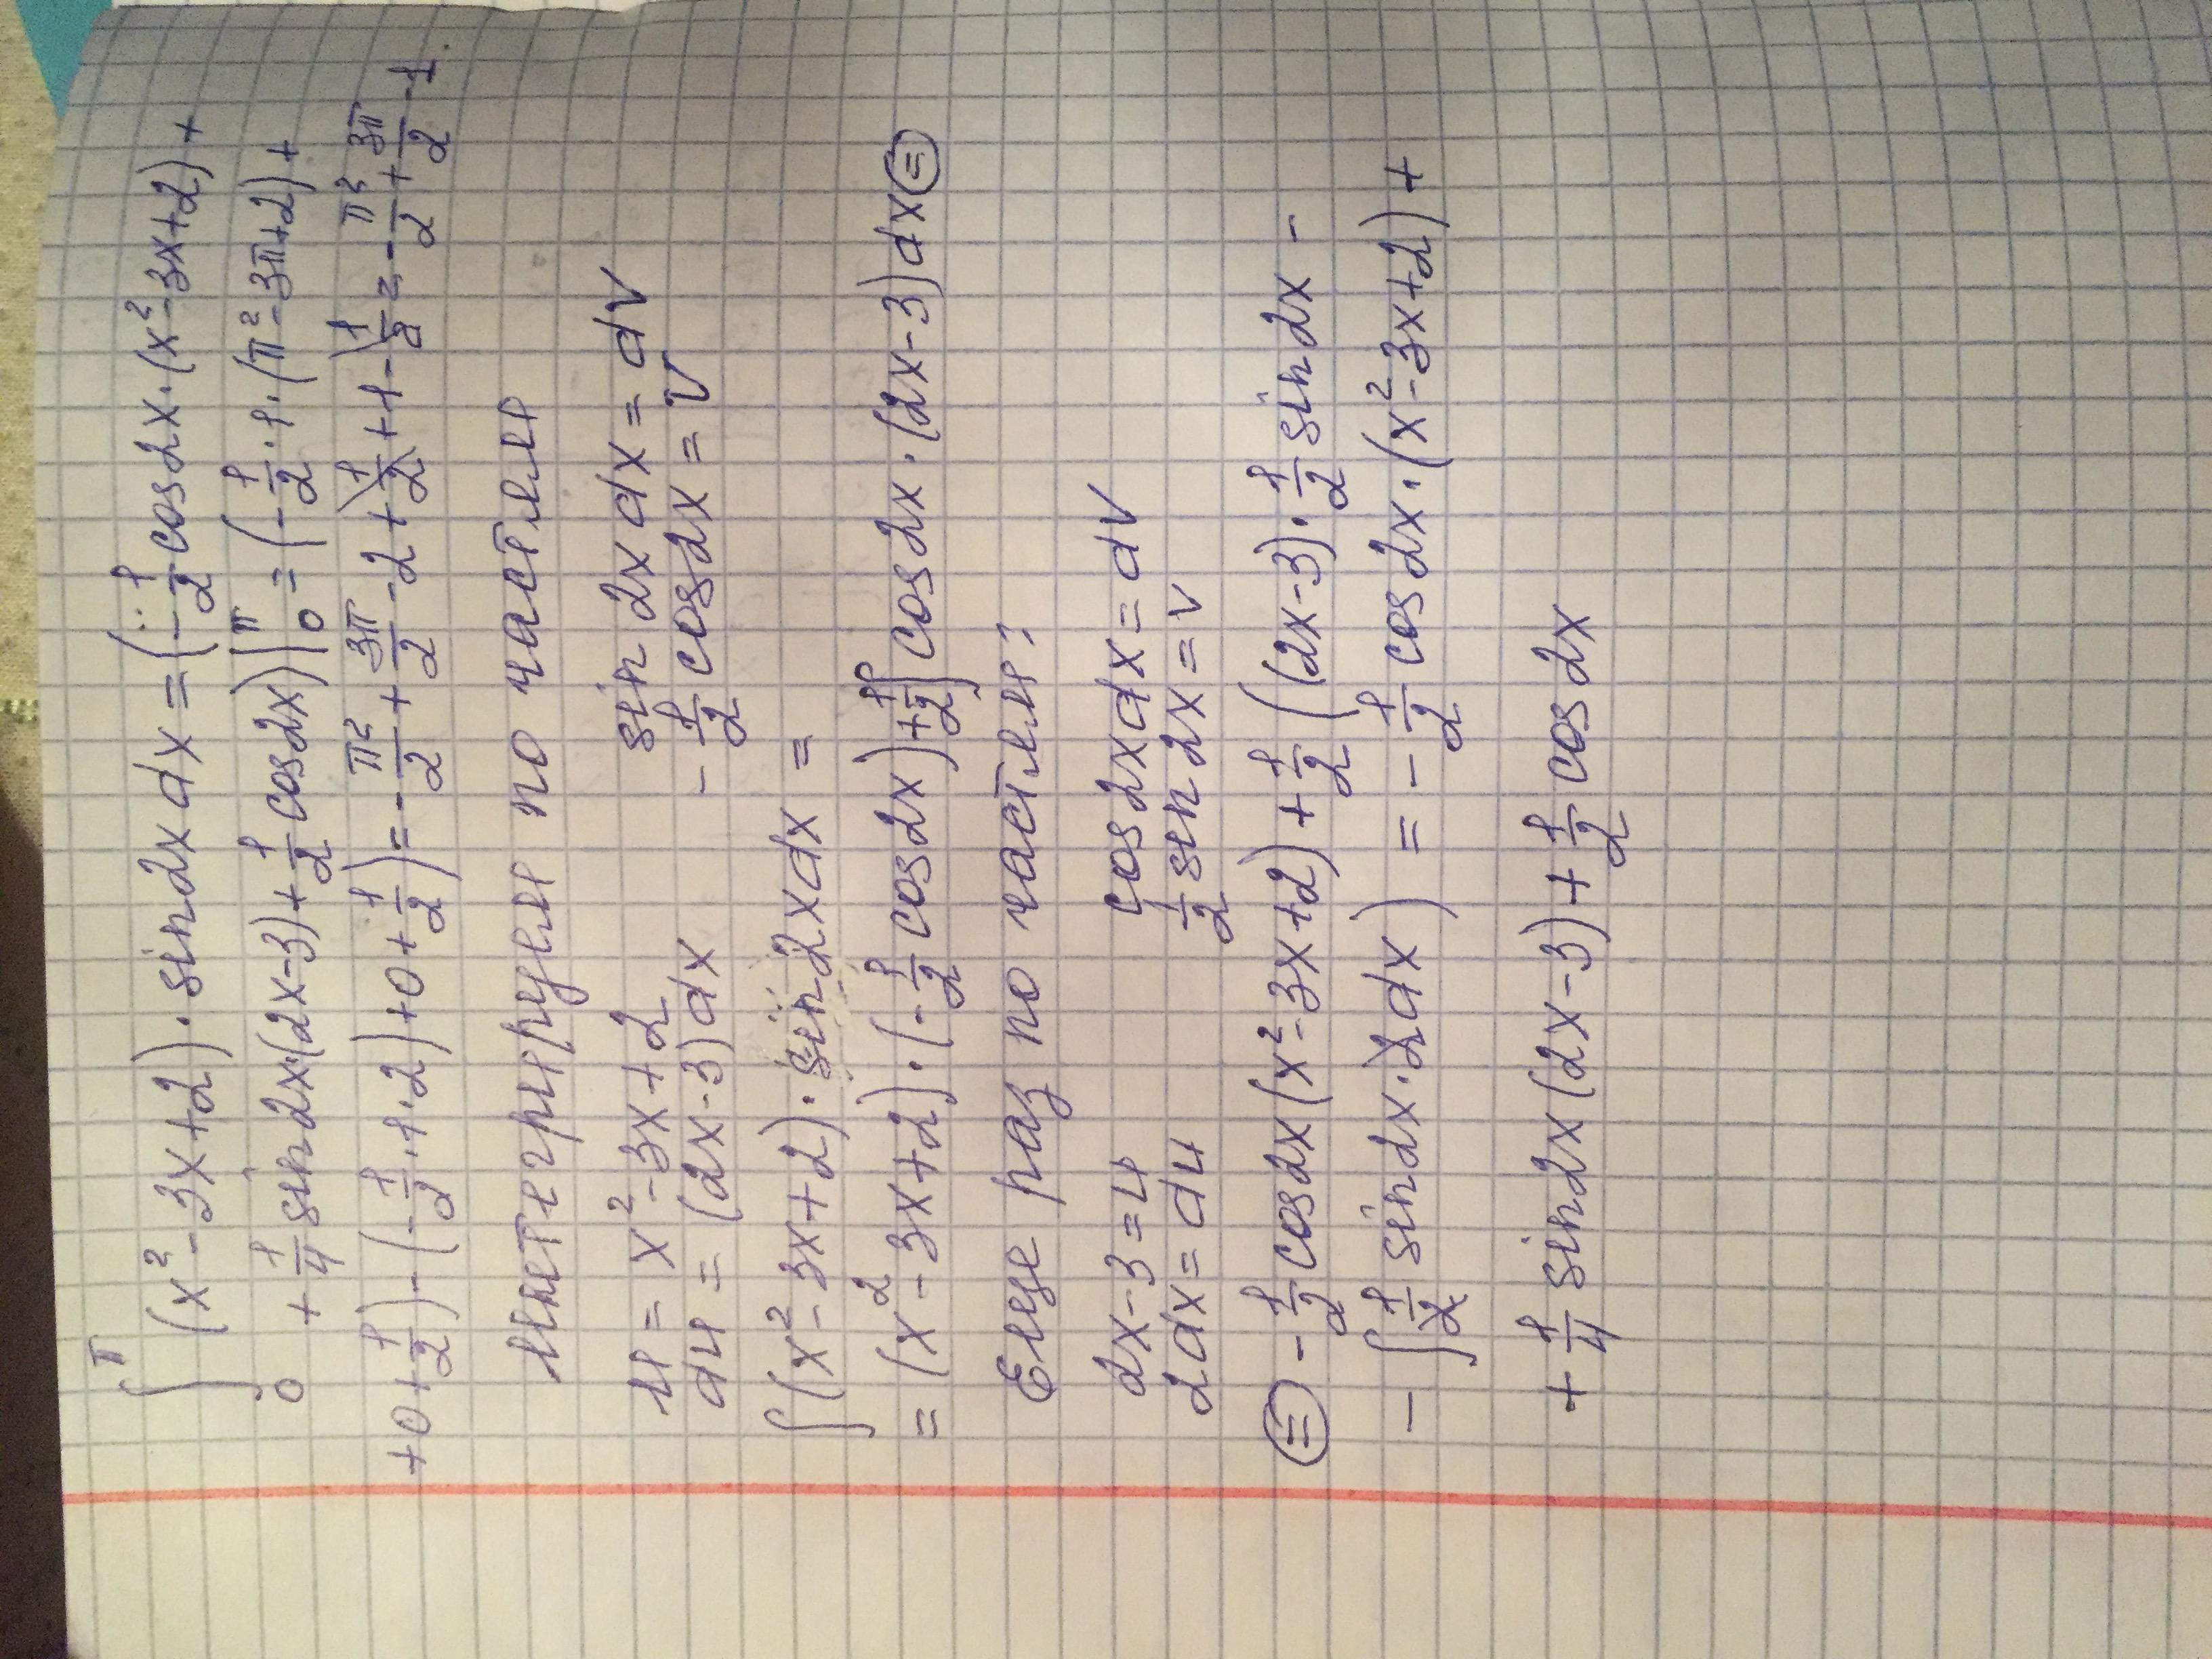 ∫₀^π (x² - 3x + 2) · sin2x dx = (- 1/2 cos2x · (x² - 3x + 2) +
+ 1/4 sin 2x · (2x - 3) + 1/2 cos2x) |₀^π = (- 1/2 · 1 · (π² - 3π + 2) +
+ 0 + 1/2) - (- 1/2 · 1 · 2) + 0 + 1/2) = - π²/2 + 3π/2 - 2 + 1/2 + 1 - 1/2 = - π²/2 + 3π/2 - 1
Интегрируем по частям
u = x² - 3x + 2 sin 2x dx = dV
du = (2x - 3) dx - 1/2 cos2x = V
∫(x² - 3x + 2) · sin 2x dx =
= (x² - 3x + 2) · (- 1/2 cos2x) + 1/2 ∫ cos 2x · (2x - 3) dx ⊜
Еще раз по частям:
2x - 3 = u cos 2x dx = dV
2dx = du 1/2 sin 2x = V
⊜ - 1/2 cos2x (x² - 3x + 2) + 1/2 ((2x - 3) · 1/2 sin 2x -
- ∫ 1/2 sin 2x · 2 dx) = - 1/2 cos 2x · (x² - 3x + 2) +
+ 1/4 sin 2x (2x - 3) + 1/2 cos 2x